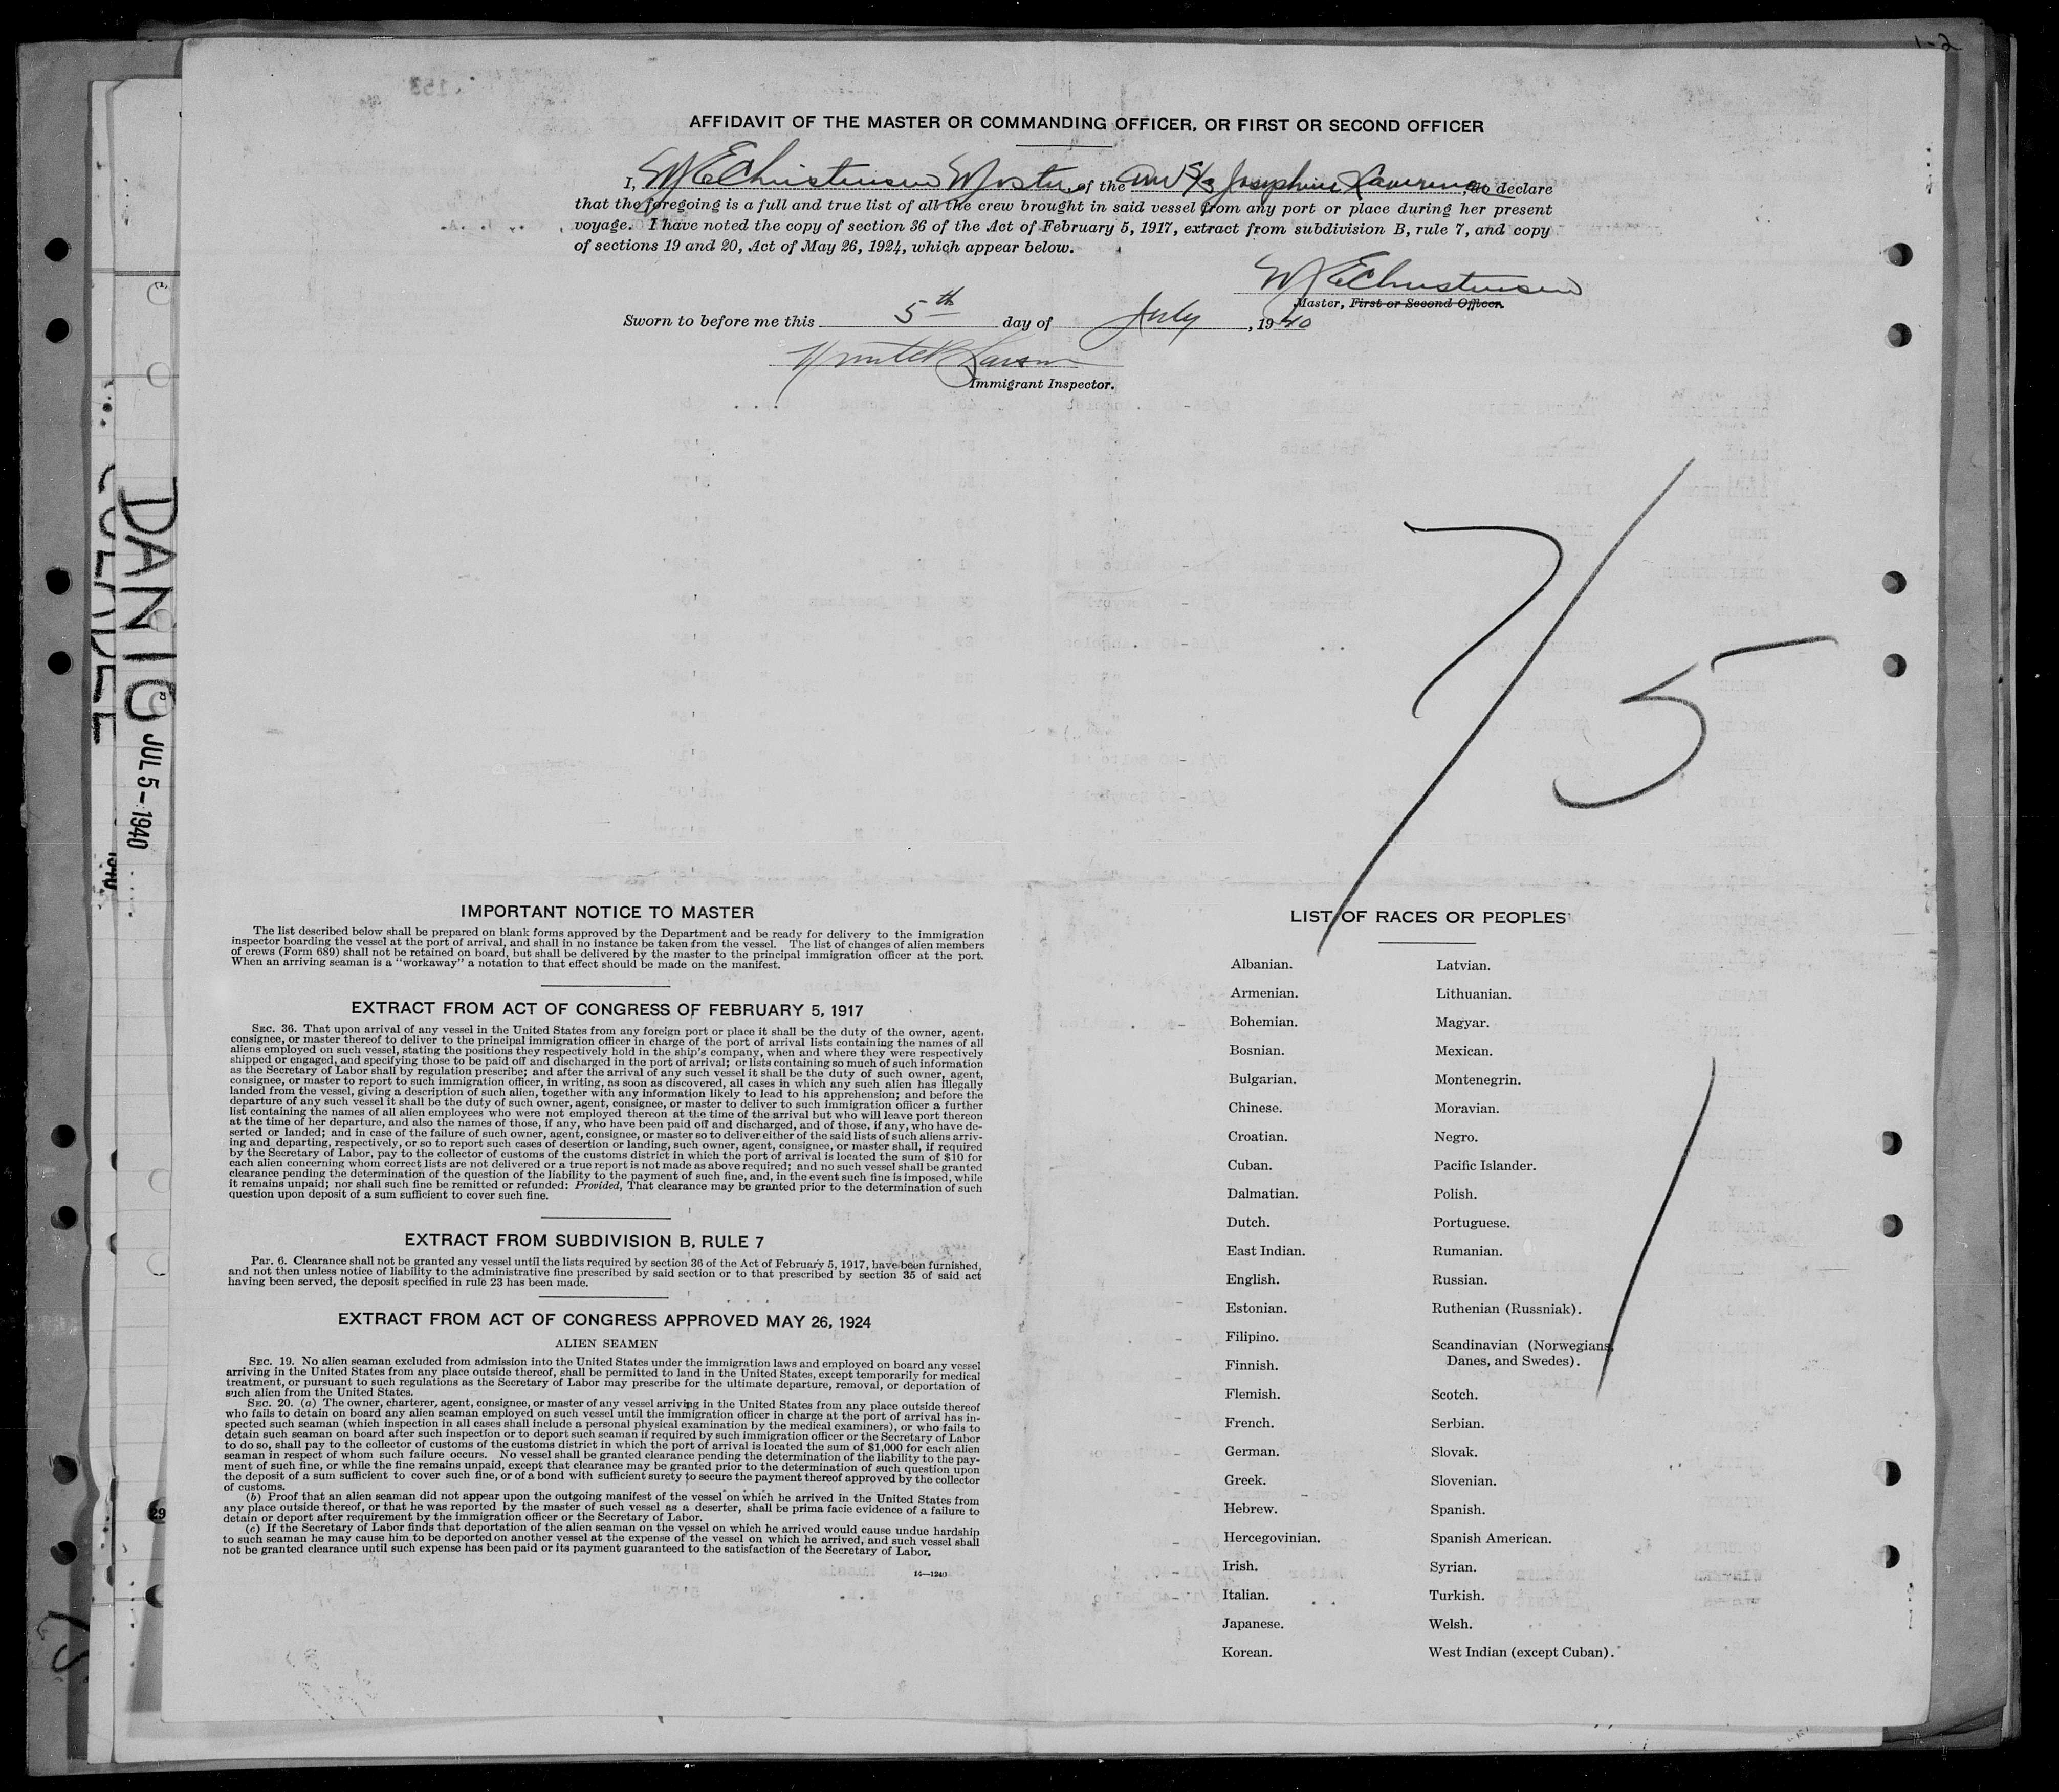 1-2
AFFIDAVIT OF THE MASTER OR COMMANDING OFFICER, OR FIRST OR SECOND OFFICER
I, W E Christensen Master, of the Am S/S Josephine Lawrence, do declare
that the foregoing is a full and true list of all the crew brought in said vessel from any port or place during her present
voyage. I have noted the copy of section 36 of the Act of February 5, 1917, extract from subdivision B, rule 7, and copy
of sections 19 and 20, Act of May 26, 1924, which appear below.
W E Christensen
Master, First or Second Officer.
Sworn to before me this 5th day of July, 1940
Larson
Immigrant Inspector.
7/5
DANIG JUL 5-1940
IMPORTANT NOTICE TO MASTER
The list described below shall be prepared on blank forms approved by the Department and be ready for delivery to the immigration
inspector boarding the vessel at the port of arrival, and shall in no instance be taken from the vessel. The list of changes of alien members
of crews (Form 689) shall not be retained on board, but shall be delivered by the master to the principal immigration officer at the port.
When an arriving seaman is a "workaway" a notation to that effect should be made on the manifest.
EXTRACT FROM ACT OF CONGRESS OF FEBRUARY 5, 1917
SEC. 36. That upon arrival of any vessel in the United States from any foreign port or place it shall be the duty of the owner, agent,
consignee, or master thereof to deliver to the principal immigration officer in charge of the port of arrival lists containing the names of all
aliens employed on such vessel, stating the positions they respectively hold in the ship's company, when and where they were respectively
shipped or engaged, and specifying those to be paid off and discharged in the port of arrival; or lists containing so much of such information
as the Secretary of Labor shall by regulation prescribe; and after the arrival of any such vessel it shall be the duty of such owner, agent,
consignee, or master to report to such immigration officer, in writing, as soon as discovered, all cases in which any such alien has illegally
landed from the vessel, giving a description of such alien, together with any information likely to lead to his apprehension; and before the
departure of any such vessel it shall be the duty of such owner, agent, consignee, or master to deliver to such immigration officer a further
list containing the names of all alien employees who were not employed thereon at the time of the arrival but who will leave port thereon
at the time of her departure, and also the names of those, if any, who have been paid off and discharged, and of those, if any, who have de-
serted or landed; and in case of the failure of such owner, agent, consignee, or master so to deliver either of the said lists of such aliens arriv-
ing and departing, respectively, or so to report such cases of desertion or landing, such owner, agent, consignee, or master shall, if required
by the Secretary of Labor, pay to the collector of customs of the customs district in which the port of arrival is located the sum of $10 for
each alien concerning whom correct lists are not delivered or a true report is not made as above required; and no such vessel shall be granted
clearance pending the determination of the question of the liability to the payment of such fine, and, in the event such fine is imposed, while
it remains unpaid; nor shall such fine be remitted or refunded: Provided, That clearance may be granted prior to the determination of such
question upon deposit of a sum sufficient to cover such fine.
EXTRACT FROM SUBDIVISION B, RULE 7
Par. 6. Clearance shall not be granted any vessel until the lists required by section 36 of the Act of February 5, 1917, have been furnished,
and not then unless notice of liability to the administrative fine prescribed by said section or to that prescribed by section 35 of said act
having been served, the deposit specified in rule 23 has been made.
EXTRACT FROM ACT OF CONGRESS APPROVED MAY 26, 1924
ALIEN SEAMEN
SEC. 19. No alien seaman excluded from admission into the United States under the immigration laws and employed on board any vessel
arriving in the United States from any place outside thereof, shall be permitted to land in the United States, except temporarily for medical
treatment, or pursuant to such regulations as the Secretary of Labor may prescribe for the ultimate departure, removal, or deportation of
such alien from the United States.
SEC. 20. (a) The owner, charterer, agent, consignee, or master of any vessel arriving in the United States from any place outside thereof
who fails to detain on board any alien seaman employed on such vessel until the immigration officer in charge at the port of arrival has in-
spected such seaman (which inspection in all cases shall include a personal physical examination by the medical examiners), or who fails to
detain such seaman on board after such inspection or to deport such seaman if required by such immigration officer or the Secretary of Labor
to do so, shall pay to the collector of customs of the customs district in which the port of arrival is located the sum of $1,000 for each alien
seaman in respect of whom such failure occurs. No vessel shall be granted clearance pending the determination of the liability to the pay-
ment of such fine, or while the fine remains unpaid, except that clearance may be granted prior to the determination of such question upon
the deposit of a sum sufficient to cover such fine, or of a bond with sufficient surety to secure the payment thereof approved by the collector
of customs.
(b) Proof that an alien seaman did not appear upon the outgoing manifest of the vessel on which he arrived in the United States from
any place outside thereof, or that he was reported by the master of such vessel as a deserter, shall be prima facie evidence of a failure to
detain or deport after requirement by the immigration officer or the Secretary of Labor.
(c) If the Secretary of Labor finds that deportation of the alien seaman on the vessel on which he arrived would cause undue hardship
to such seaman he may cause him to be deported on another vessel at the expense of the vessel on which he arrived, and such vessel shall
not be granted clearance until such expense has been paid or its payment guaranteed to the satisfaction of the Secretary of Labor.
14—1240
LIST OF RACES OR PEOPLES
Albanian.
Armenian.
Bohemian.
Bosnian.
Bulgarian.
Chinese.
Croatian.
Cuban.
Dalmatian.
Dutch.
East Indian.
English.
Estonian.
Filipino.
Finnish.
Flemish.
French.
German.
Greek.
Hebrew.
Hercegovinian.
Irish.
Italian.
Japanese.
Korean.
Latvian.
Lithuanian.
Magyar.
Mexican.
Montenegrin.
Moravian.
Negro.
Pacific Islander.
Polish.
Portuguese.
Rumanian.
Russian.
Ruthenian (Russniak).
Scandinavian (Norwegians,
Danes, and Swedes).
Scotch.
Serbian.
Slovak.
Slovenian.
Spanish.
Spanish American.
Syrian.
Turkish.
Welsh.
West Indian (except Cuban).
29